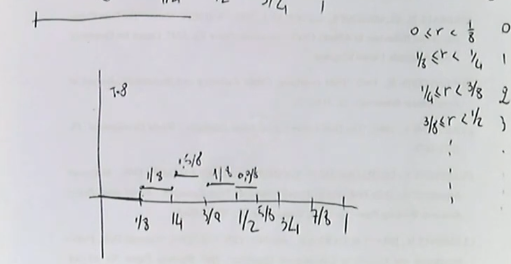 3/4 1
0 ≤ r < 1/8 0
1/8 ≤ r < 1/4 1
1/4 ≤ r < 3/8 2
3/8 ≤ r < 1/2 3
1/8 1/8
1/8 1/4 3/8 1/2 5/8 3/4 7/8 1